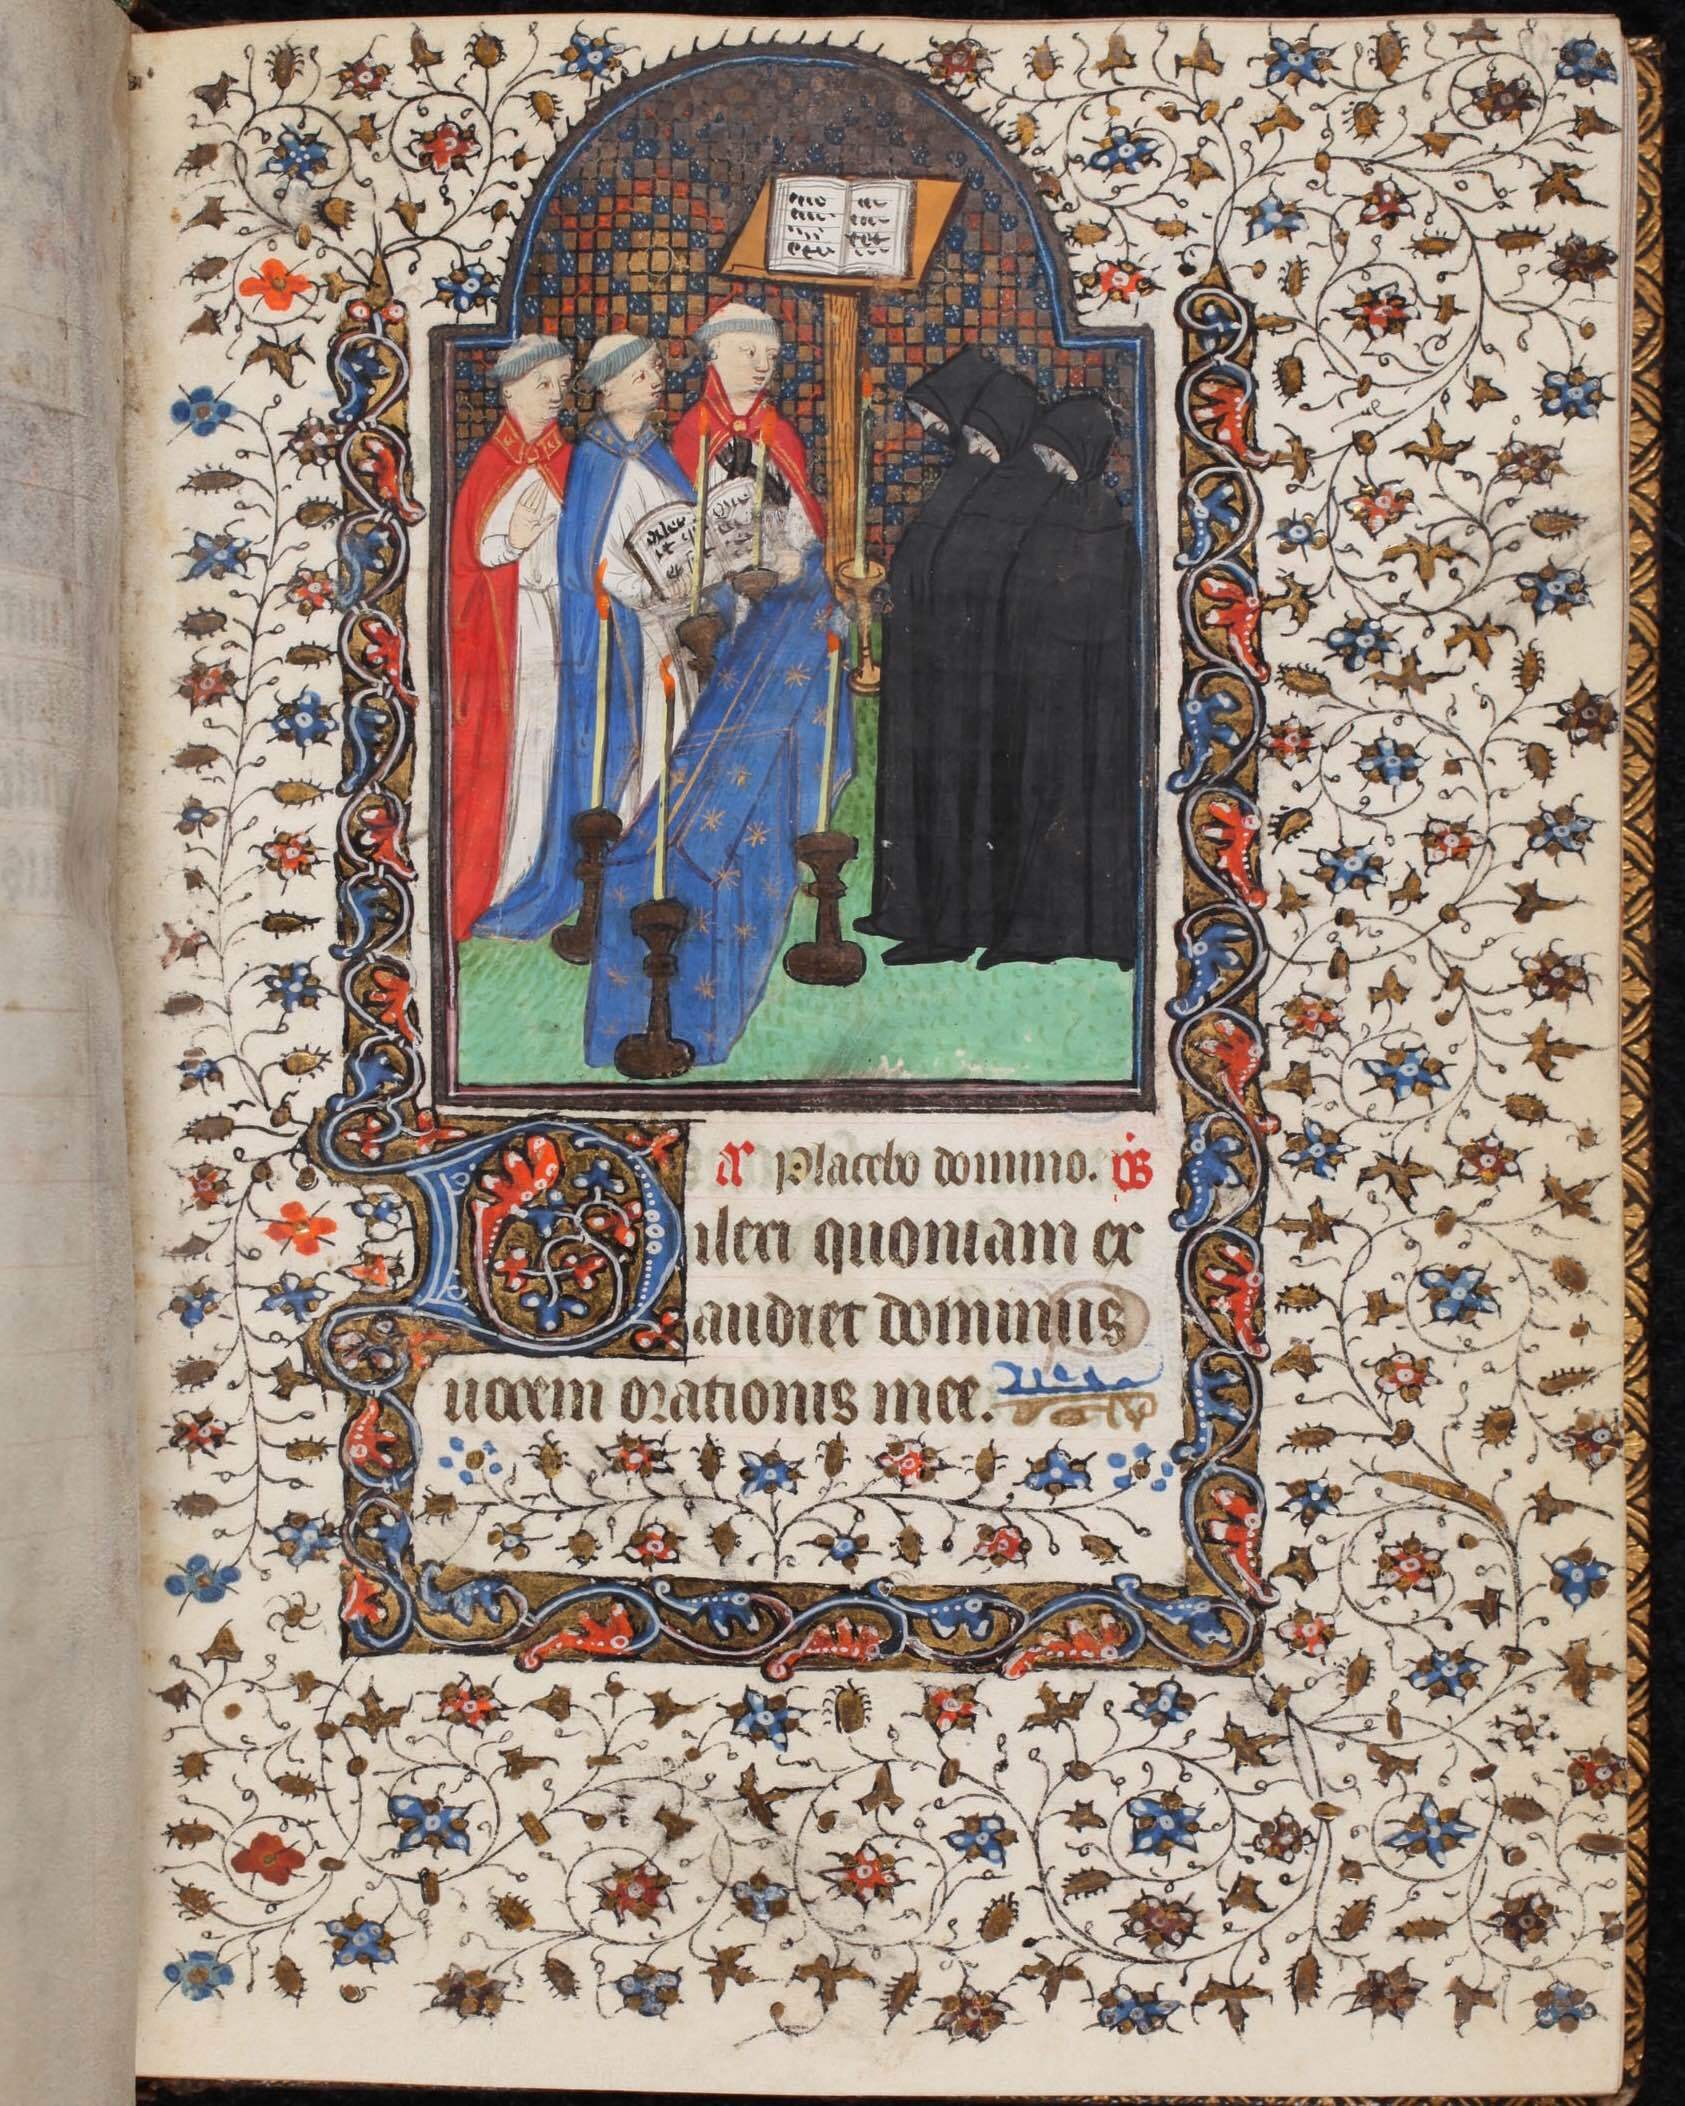 añ Placebo domino. ps̄
Dilexi quoniam ex
audiet dominus
uocem orationis mee.